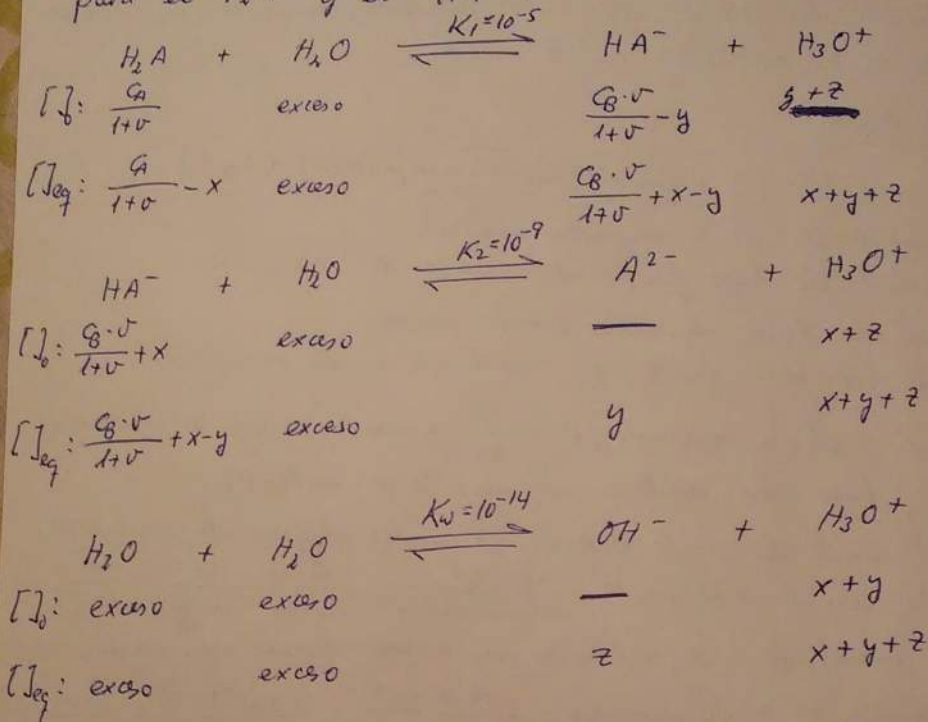 para el H₂A y el
H₂A + H₂O ⇌ K₁=10⁻⁵ HA⁻ + H₃O⁺
[]₀: C_A/(1+v) exceso C_B·v/(1+v) - y y+z
[]eq: C_A/(1+v) - x exceso C_B·v/(1+v) + x - y x+y+z
HA⁻ + H₂O ⇌ K₂=10⁻⁹ A²⁻ + H₃O⁺
[]₀: C_B·v/(1+v) + x exceso — x+z
[]eq: C_B·v/(1+v) + x - y exceso y x+y+z
H₂O + H₂O ⇌ Kw=10⁻¹⁴ OH⁻ + H₃O⁺
[]₀: exceso exceso — x+y
[]eq: exceso exceso z x+y+z